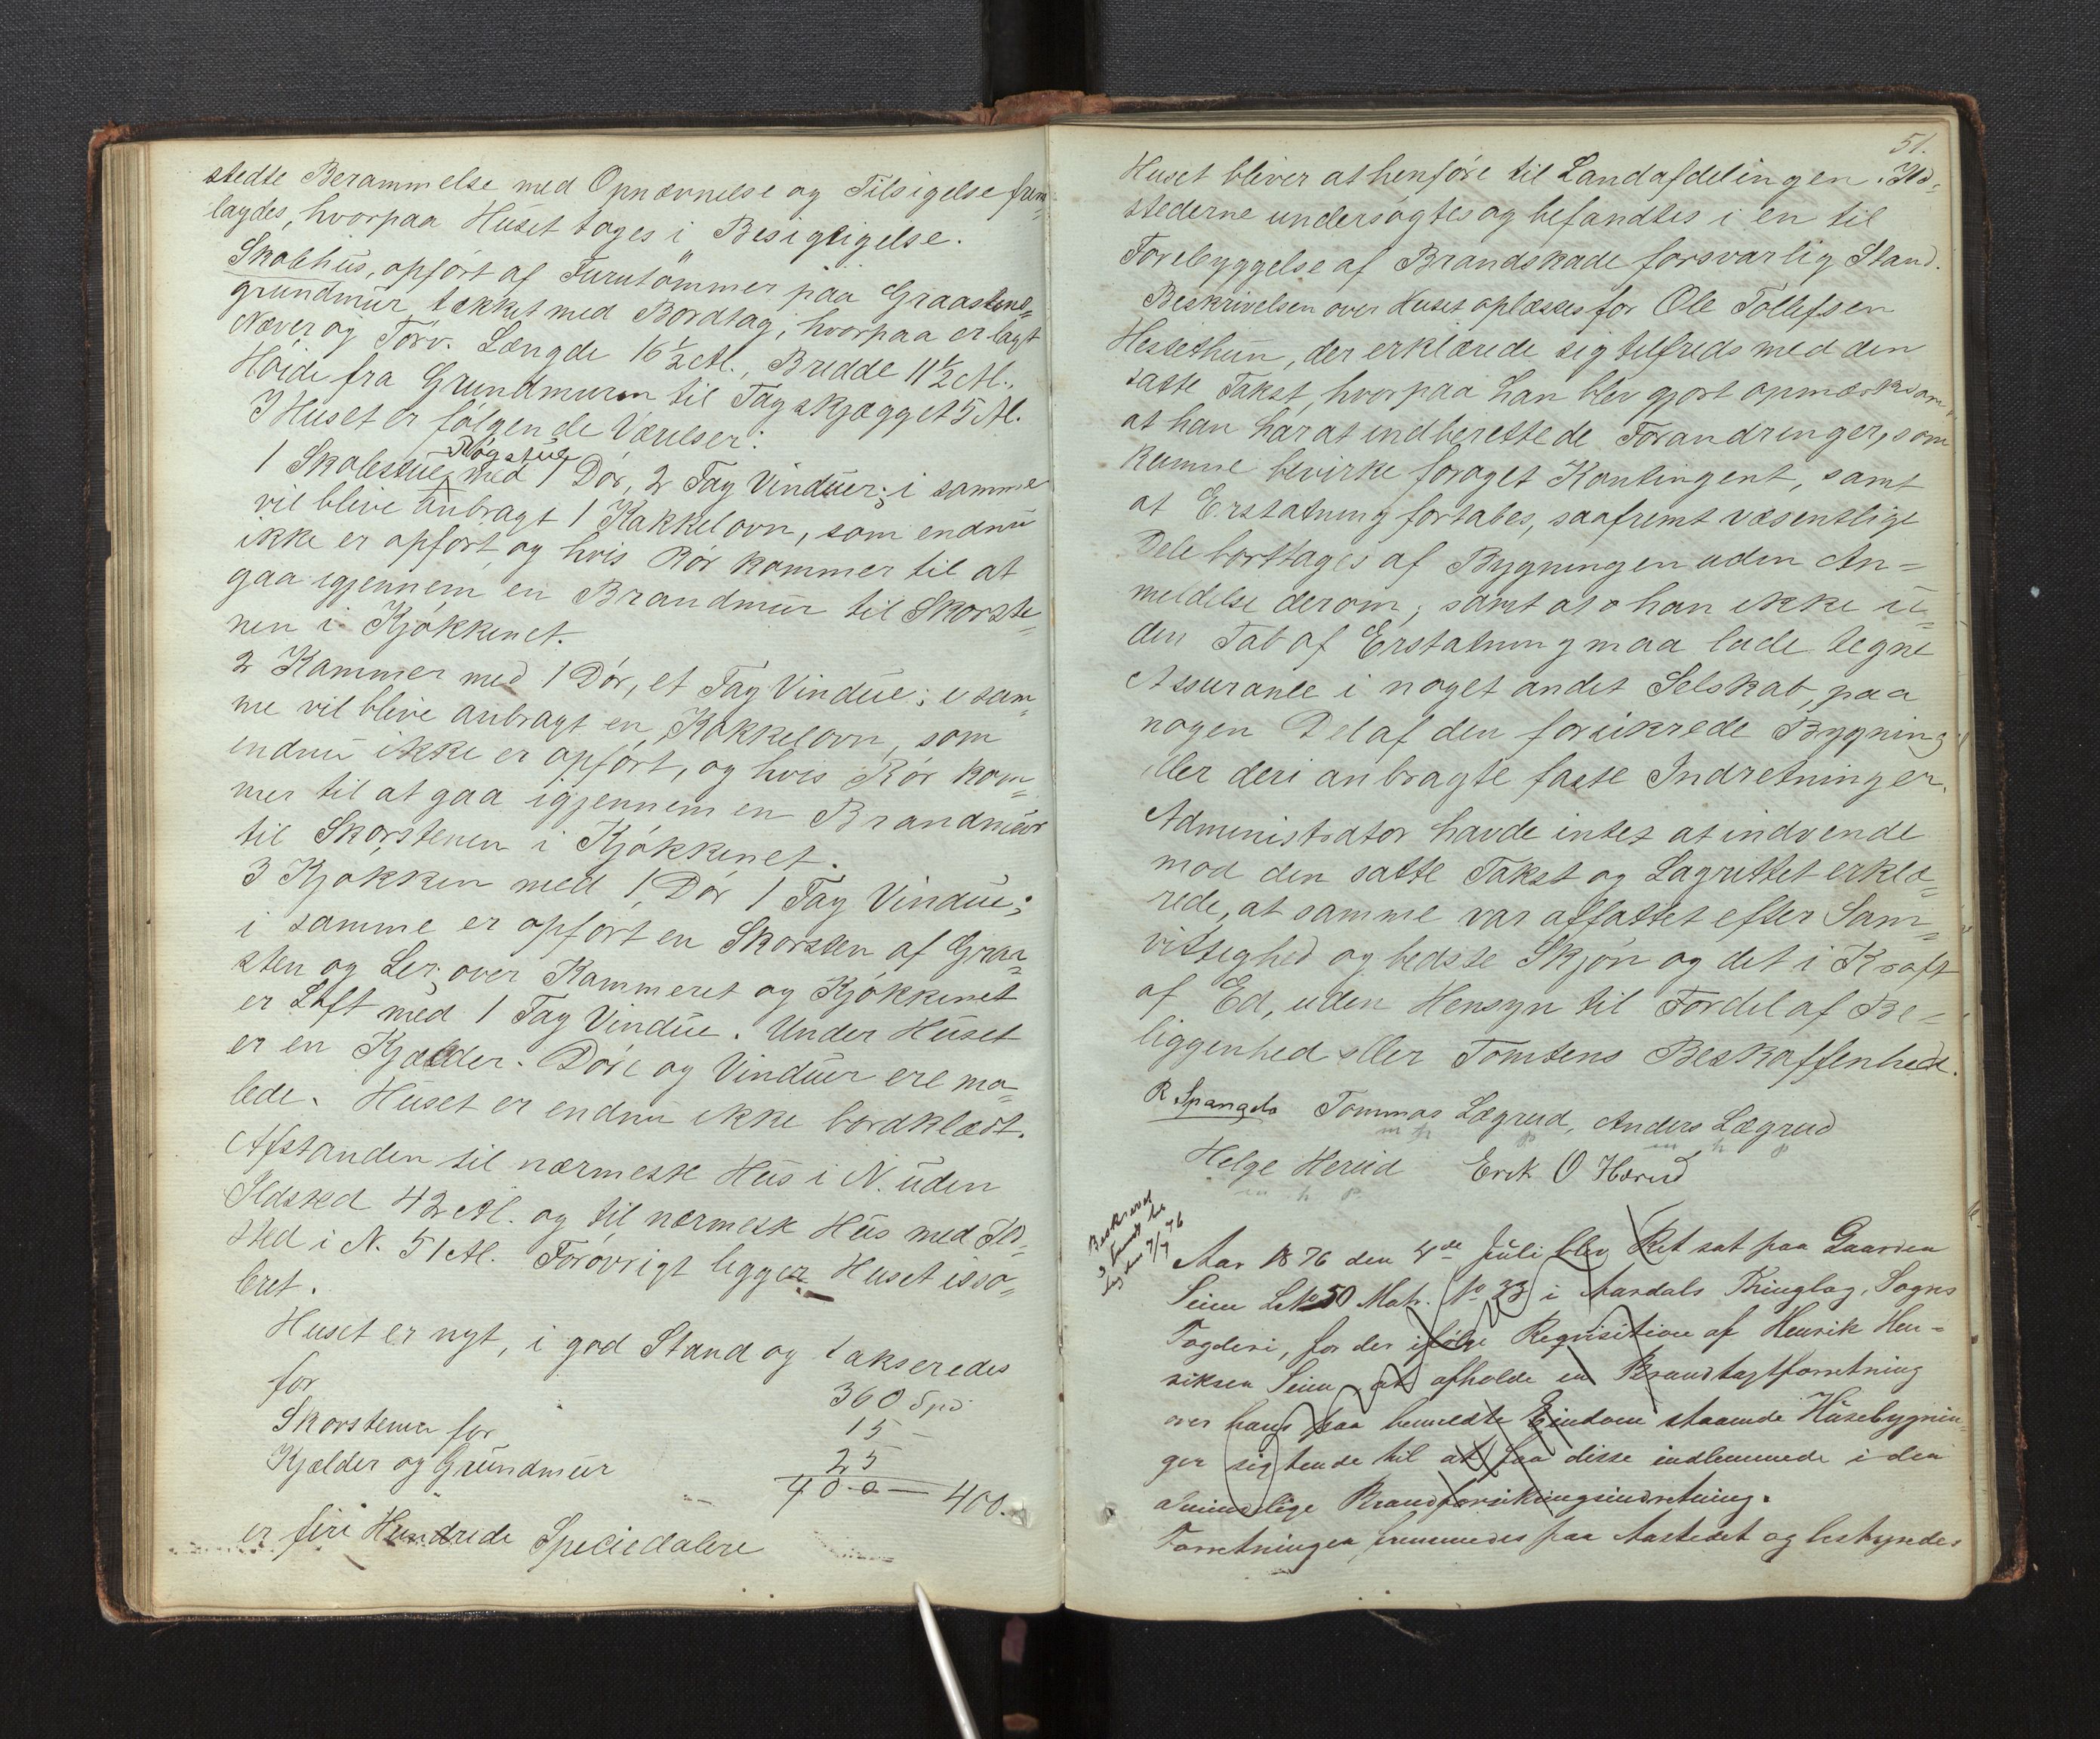 stedte Berammelse med Opnævnelse og Tilsigelse frem=
lagdes, hvorpaa Huset toges i Besigtigelse.
Skolehus, opført af Furutømmer paa Graastens=
grundmur tækket med Bordtag, hvorpaa er lagt
Næver og Torv. Længde 16 1/2 Al., Bredde 11 1/2 Al.,
Høide fra Grundmuren til Tagskjægget 5 Al.
I Huset er følgende Værelser:
Røgstue
1 Skolestue med 1 Dør, 2 Fag Vinduer; i samme
vil blive anbragt 1 Kakkelovn, som endnu
ikke er opført, og hvis Rør kommer til at
gaa igjennem en Brandmur til Skorste=
nen i Kjøkkenet.
2 Kammer med 1 Dør, et Fag Vindue; i sam=
me vil blive anbragt en Kakkelovn, som
endnu ikke er opført, og hvis Rør kom=
mer til at gaa igjennem en Brandmur
til Skorstenen i Kjøkkenet.
3 Kjøkken med 1 Dør 1 Fag Vindue;
i samme er opført en Skorsten af Graa=
sten og Ler; over Kammeret og Kjøkkenet
er Loft med 1 Fag Vindue. Under Huset
er en Kjælder. Døre og Vinduer ere ma=
lede. Huset er endnu ikke bordklædt.
Afstanden til nærmeste Hus i N. uden
Ildsted 42 Al. og til nærmeste Hus med Ild=
sted i N. 51 Al. Forøvrigt ligger Huset iso=
leret.
Huset er nyt, i god Stand og takseredes
for 360 Spd
Skorstenen for 15 –
Kjælder og Grundmur 25
400 — 400.
er fire Hundrede Speciedalere
51.
Huset bliver at henføre til Landafdelingen. Ild=
stederne undersøgtes og befandtes i en til
Forebyggelse af Brandskade forsvarlig Stand.
Beskrivelsen over Huset oplæstes for Ole Tollefsen
Hestethun, der erklærede sig tilfreds med den
satte Takst, hvorpaa han blev gjort opmærksom
at han har at indberette de Forandringer, som
kunne bevirke forøget Kontingent, samt
at Erstatning fortabes, saafremt væsentlige
Dele borttages af Bygningen uden An=
meldelse derom, samt at han ikke u=
den Tab af Erstatning maa lade tegne
Assurance i noget andet Selskab, paa
nogen Del af den forsikrede Bygning
eller deri anbragte faste Indretninger.
Administrator havde intet at indvende
mod den satte Takst og Lagrettet erklæ=
rede, at samme var affattet efter Sam=
vittighed og bedste Skjøn og det i Kraft
af Ed, uden Hensyn til Fordel af Be=
liggenhed eller Tomtens Beskaffenhed.
R. Spangelo Tommas Lægreid, Anders Lægreid
m p m h p
Helge Hereid Erik O Hæreid
m h P
Beskrevet
9/7 76
Aar 1876 den 4de Juli blev Ret sat paa Gaarden
Seim LNo 50 Matr. No 33 i Aardals Thinglag, Sogns
Fogderi, for der ifølge Requisition af Henrik Hen=
riksen Seim at afholde en Brandtaxtforretning
over hans paa bemeldte Eiendom staaende Husebygnin=
ger sigtende til at faa disse indlemmede i den
almindelige Brandforsikringsindretning.
Forretningen fremmedes paa Aastedet og bestyredes